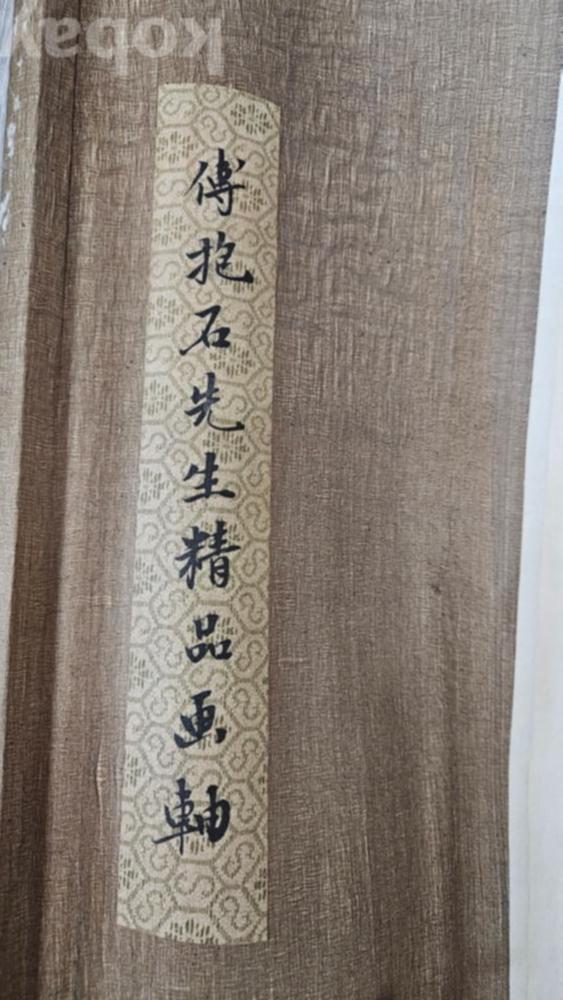 kobay
傅抱石先生精品画軸